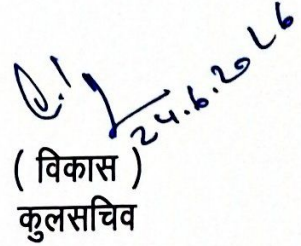 24.6.2026
( विकास )
कुलसचिव